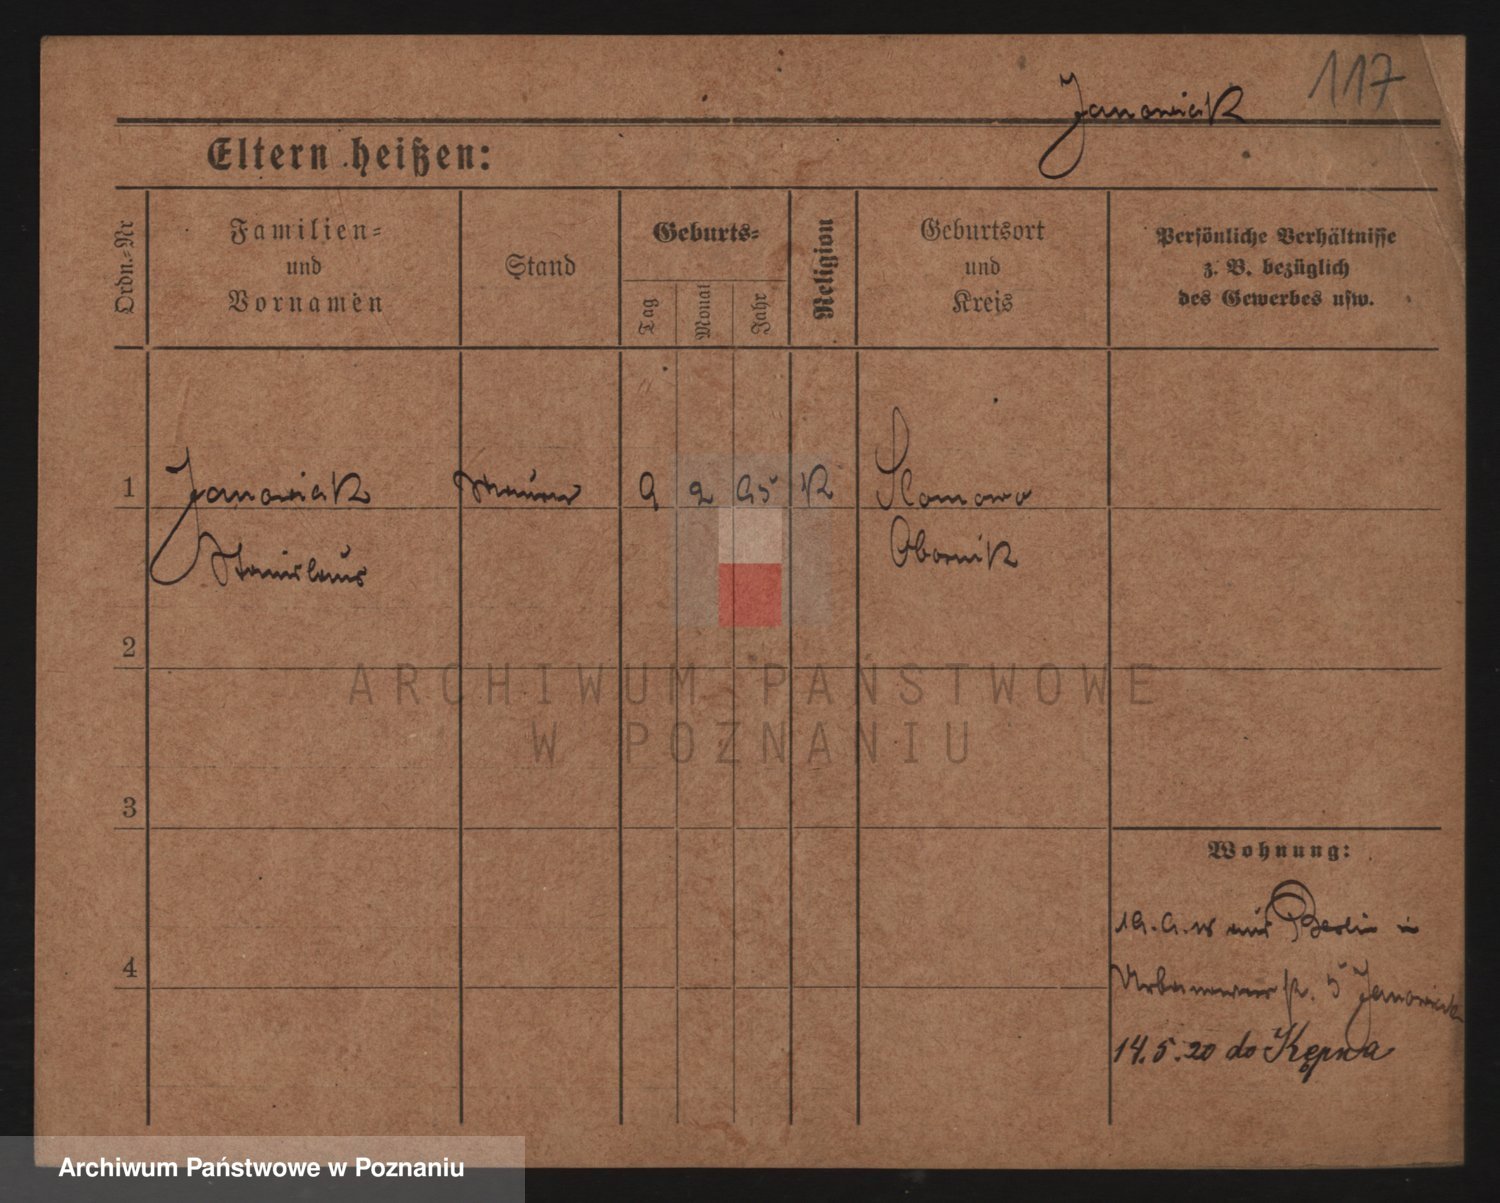 117
Janowiak
Eltern heißen:
Ordn.-Nr
Familien-
und
Vornamen
Stand
Geburts-
Tag
Monat
Jahr
Religion
Geburtsort
und
Kreis
Persönliche Verhältnisse
z. B. bezüglich
des Gewerbes usw.
1 Janowiak Maurer 9 2 95 K Slomowo
Stanislaus Obornik
2
3
4
Wohnung:
19.9.18 aus Berlin in
5 Janowiak
14.5.20 do Kępna
ARCHIWUM PAŃSTWOWE
W POZNANIU
Archiwum Państwowe w Poznaniu